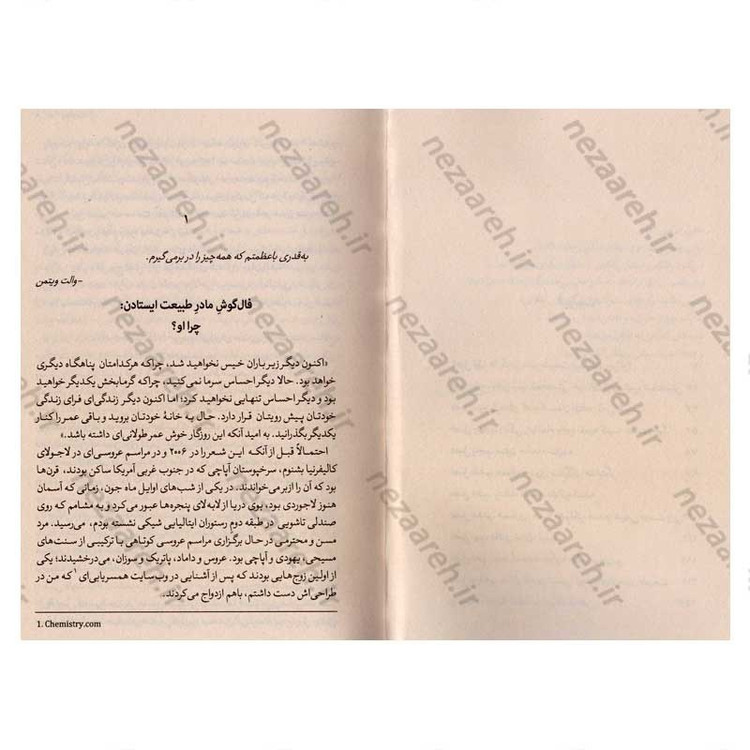 ۱
به‌قدری باعظمتم که همه‌چیز را در بر می‌گیرم.
-والت ویتمن
فال‌گوشِ مادرِ طبیعت ایستادن:
چرا او؟
«اکنون دیگر زیر باران خیس نخواهید شد، چراکه هرکدامتان پناهگاه دیگری
خواهد بود. حالا دیگر احساس سرما نمی‌کنید، چراکه گرمابخش یکدیگر خواهید
بود و دیگر احساس تنهایی نخواهید کرد؛ اما اکنون دیگر زندگی‌ای فرای زندگی
خودتان پیش رویتان قرار دارد. حال به خانهٔ خودتان بروید و باقی عمر را کنار
یکدیگر بگذرانید. به امید آنکه این روزگار خوش عمر طولانی‌ای داشته باشد.»
احتمالاً قبل از آنکه این شعر را در ۲۰۰۶ و در مراسم عروسی‌ای در لاجولای
کالیفرنیا بشنوم، سرخپوستان آپاچی که در جنوب غربی آمریکا ساکن بودند، قرن‌ها
بود که آن را از بر می‌خواندند. در یکی از شب‌های اوایل ماه جون، زمانی که آسمان
هنوز لاجوردی بود، بوی دریا از لابه‌لای پنجره‌ها عبور می‌کرد و به مشامم که روی
صندلی تاشویی در طبقه دوم رستوران ایتالیایی شیکی نشسته بودم، می‌رسید. مرد
مسن و محترمی در حال برگزاری مراسم عروسی کوتاهی با ترکیبی از سنت‌های
مسیحی، یهودی و آپاچی بود. عروس و داماد، پاتریک و سوزان، می‌درخشیدند؛ یکی
از اولین زوج‌هایی بودند که پس از آشنایی در وب‌سایت همسریابی‌ای۱ که من در
طراحی‌اش دست داشتم، باهم ازدواج می‌کردند.
1. Chemistry.com
nezaareh.ir
nezaareh.ir
nezaareh.ir
nezaareh.ir
nezaareh.ir
nezaareh.ir
nezaareh.ir
nezaareh.ir